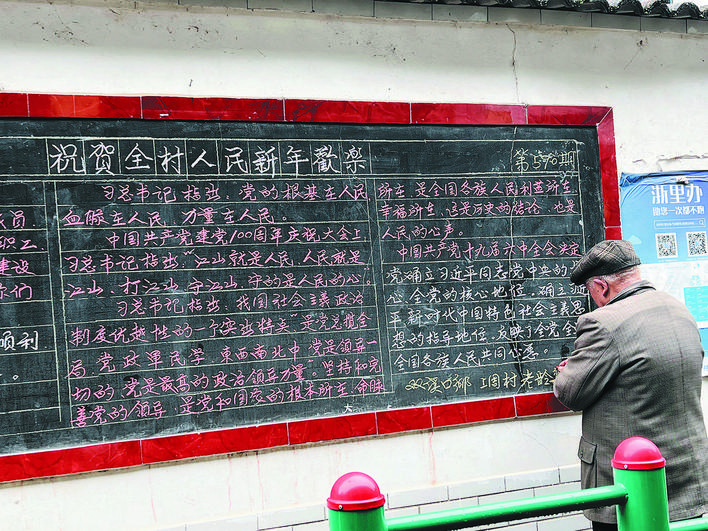 祝贺全村人民新年歡樂
第590期
员
职工
建设
你们
顺利
习总书记指出：党的根基在人民，
血脉在人民，力量在人民。
中国共产党建党100周年庆祝大会上
习总书记指出"江山就是人民，人民就是
江山，打江山、守江山，守的是人民的心。
习总书记指出：我国社会主义政治
制度优越性的一个突出特点"是党总揽全
局
党政軍民学，東西南北中，党是领导一
切的，党是最高的政治领导力量。坚持和完
善党的领导，是党和国家的根本所在、命脉
所在，是全国各族人民利益所在、
幸福所在，这是历史的结论，也是
人民的心声。
中国共产党十九届六中全会决定
党确立习近平同志党中央的
心、全党的核心地位，确立习近
平新时代中国特色社会主义思
想的指导地位，反映了全党全
全国各族人民共同心意。
双溪口鄉
村老龄
大
浙里办